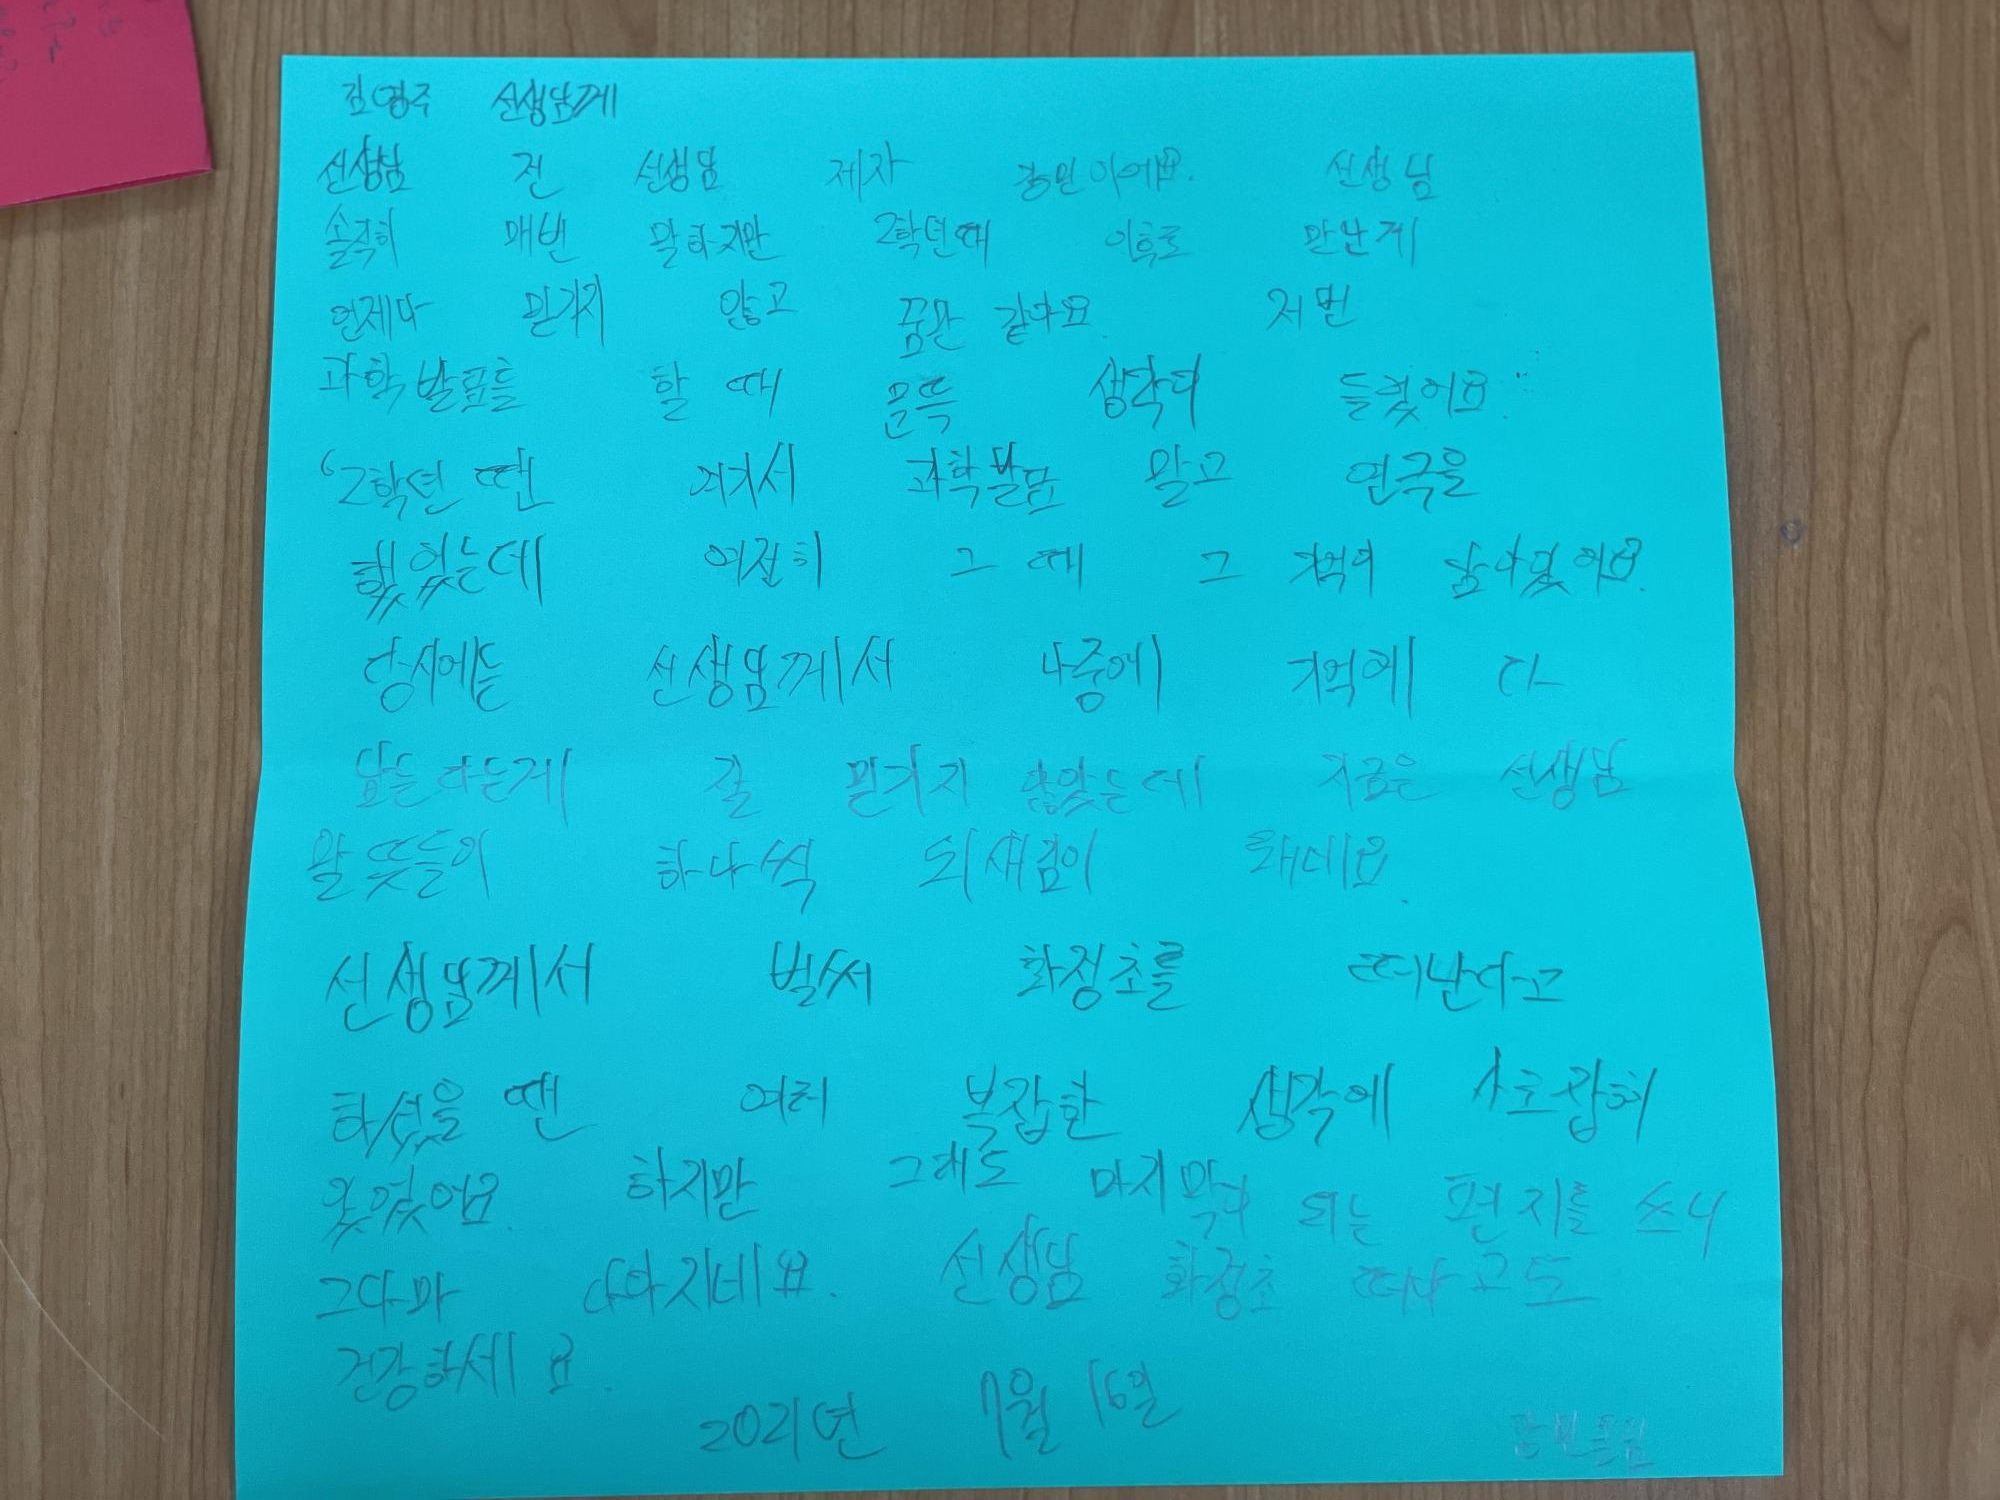 김영주 선생님께
선생님 전 선생님 제자 강민이에요. 선생님
솔직히 매번 말하지만 2학년때 이후로 만난게
언제나 믿기지 않고 꿈만 같아요. 저번
과학발표를 할 때 문뜩 생각이 들었어요.
'2학년 땐 여기서 과학발표 말고 연극을
했었는데 여전히 그 때 그 기억이 남아있어요.
당시에는 선생님께서 나중에 기억에 다
남는다는게 잘 믿기지 않았는데 지금은 선생님
말 뜻들이 하나씩 되새김이 돼네요.
선생님께서 벌써 화정초를 떠난다고
하셨을 땐 여러 복잡한 생각에 사로잡혀
있었어요. 하지만 그래도 마지막이 되는 편지를 쓰니
그나마 나아지네요. 선생님 화정초 떠나고도
건강하세요.
2021년 7월 16일